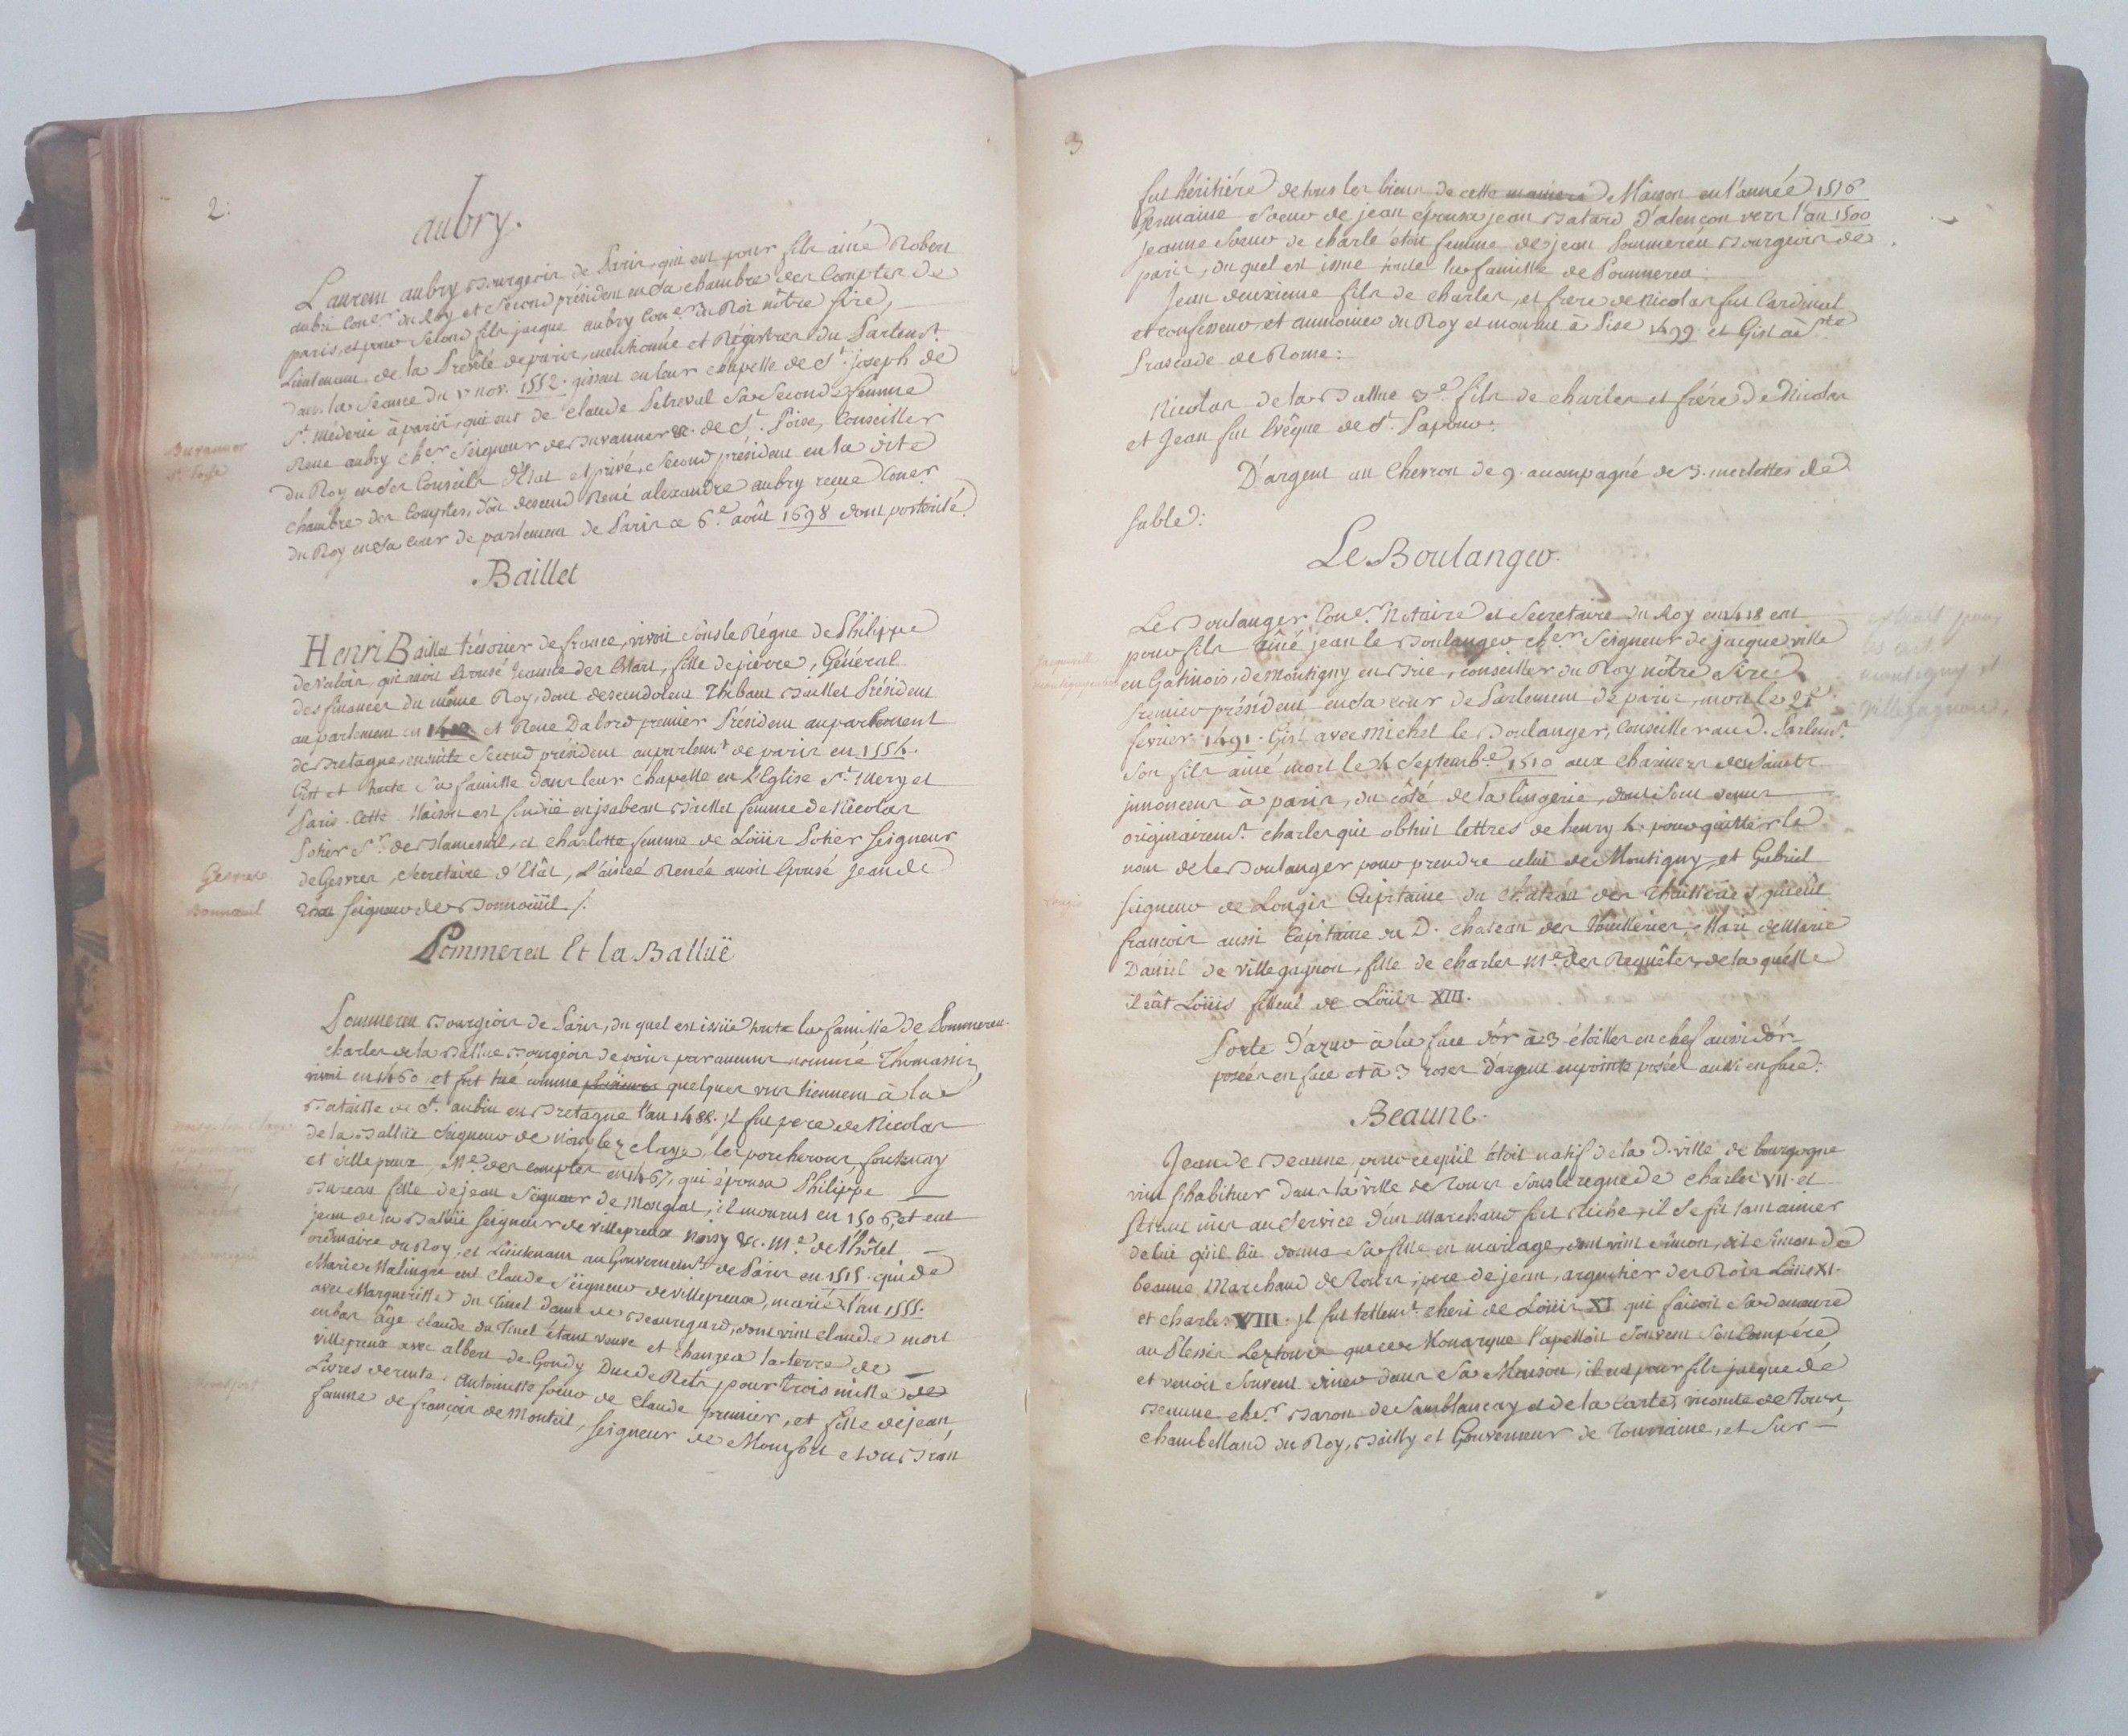 2.
aubry.
Laurent aubry Bourgeois de Paris, qui eut pour fils ainé Robert
aubri Con.er du Roy et Second président en Sa chambre des Comptes de
paris, et pour Second fils jacque aubry Con.er du Roi nôtre sire,
Lieutenant de la Prevôté de paris, mentionné et Régistres du Parlem.t
dans la Seance du nov. 1552. gissant en leur chapelle de S.t joseph de
S.t Méderic à paris, qui eut de Claude Sa Seconde femme
Rene aubry ch.er Seigneur de &c. de S.t Conseiller
du Roy en Ses Conseils d'Etat et privé, Second président en la dite
chambre des Comptes, d'où descend René alexandre aubry reçue Con.er
du Roy en Sa Cour de parlement de Paris ce 6.e août 1698 dont postérité
Baillet
Henri Baillet trésorier de france, vivoit Sous le Régne de Philippe
de Valois, qui avoit Epousé Jeanne des Essart, fille de pierre, Général
des finances du même Roy, dont descendoient Thibaut Baillet Président
au parlement en et Rene Baillet premier Président au parlement
de Bretagne, ensuite Second président au parlem.t de paris en 1554.
Gist et toute Sa famille dans leur chapelle en l'Eglise S.t Mery et
Paris. Cette Maison est fondüe en jsabeau Baillet femme de Nicolas
Potier S.r de Blamesnil, et charlotte femme de Loüis Potier Seigneur
de Gesvres, Secretaire d'Etât, L'ainée Renée avoit Epousé Jean de
Seigneur de Bonnoeüil /.
Gesvres
Bonnoeuil
Pommereu Et la Ballüe
Pommereu Bourgeois de Paris, du quel est issüe toute la famille de Pommereu.
charles de la Ballue Bourgeois de paris par aucuns nommé Thomassin,
vivoit en 1460 et fut tué comme quelques uns tiennent à la
Bataille de S.t aubin en Bretagne l'an 1488. jl fut pere de Nicolas
de la Ballüe Seigneur de Noisy lez Claye, les porcherons, fontenay
et villepreux, M.e des comptes en 1467, qui épousa Philippe
Bureau fille de jean Seigneur de Monglat, il mourut en 1506, et eut
jean de la Ballüe Seigneur de villepreux Noisy &c. M.e de l'hôtel
ordinaire du Roy, et Lieutenant au Gouvernem.t de Paris en 1515. qui de
Marie Malingre eut Claude Seigneur de villepreux, marié l'an 1555.
avec Margueritte du Tinel dame de Beauregard, dont vint claude mort
en bas âge claude du Tinel étant veuve et changea la terre de
villepreux avec albert de Gondy Duc de Rets, pour trois mille de
Livres de rente. Antoinette Soeur de Claude premier, et fille de jean,
famme de françois de Monteil, Seigneur de Montfort
Montfort
3
fut héritière de tous les biens de cette Maison en l'année 1576
Germaine Soeur de jean épousa jean Batard d'alençon vers l'an 1500
Jeanne Soeur de charle étoit femme de jean Pommereu Bourgeois de
paris, du quel est issue toute la famille de Pommereu.
Jean deuxieme fils de charles, et frere de Nicolas fut Cardinal
et confesseur, et aumonier du Roy et mourut à 1499 et Gist à S.te
Praxcade de Rome:
Nicolas de la Ballue 3.e fils de charles et frére de Nicolas
et Jean fut Evêque de S.t
D'argent au Chevron de g. acompagné de 3. merlettes de
Sable:
Le Boulanger.
Le Boulanger, Con.er Notaire et Secretaire du Roy en 1418 eut
pour fils ainé jean le Boulanger ch.er Seigneur de jacqueville
en Gatinois, de Montigny en Brie, conseiller du Roy nôtre Sire
Premier président en Sa cour de Parlement de paris, mort le 21
fevrier 1491. Gist avec Michel le Boulanger, Conseiller aud. Parlem.t
Son fils ainé mort le 4 Septemb.e 1510 aux Charniers des Saints
jnnoncens à paris, du côté de la lingerie, dont sont venus
originairem.t charles qui obtint lettres de henry 4. pour quitter le
nom de le Boulanger pour prendre celui de Montigny, et Gabriel
seigneur de Longis Capitaine du château des Thuilleries, qui eût
françois aussi Capitaine du D. chateau des Thuilleries, Mari de Marie
Daniel de ville gagnon, fille de charles M.e des Requêtes, de la quélle
il eût Loüis filleul de Loüis XIII.
Porte D'azur à la face d'or à 3 étoilles en chef aussi d'ôr
posées en face et à 3 roses d'argent en pointe posées aussi en face:
extrait pour
les
montigny et
villegagnon.
Beaune.
Jean de Beaune, pour ce qu'il étoit natif de la d. ville de bourgogne
vint s'habituer dans la ville de Tours Sous le regne de charles VII. et
s'étant mis au Service d'un Marchand fort Riche, il se fit tant aimer
de lui qu'il lui donna Sa fille en mariage, dont vint Simon, dit Simon de
beaune Marchand de Tours, pere de jean, argentier des Rois Loüis XI.
et charles VIII. jl fut tellem.t cheri de Loüis XI qui faisoit Sa demeure
au Plessis Lez tours que ce Monarque l'apelloit Souvent Son Compére,
et venoit Souvent diner dans Sa Maison, il eut pour fils jacque de
Beaune che.r Baron de Samblançay et de la Carte, vicomte de Tours,
chambelland du Roy, Bailly et Gouverneur de Tourraine, et Sur-